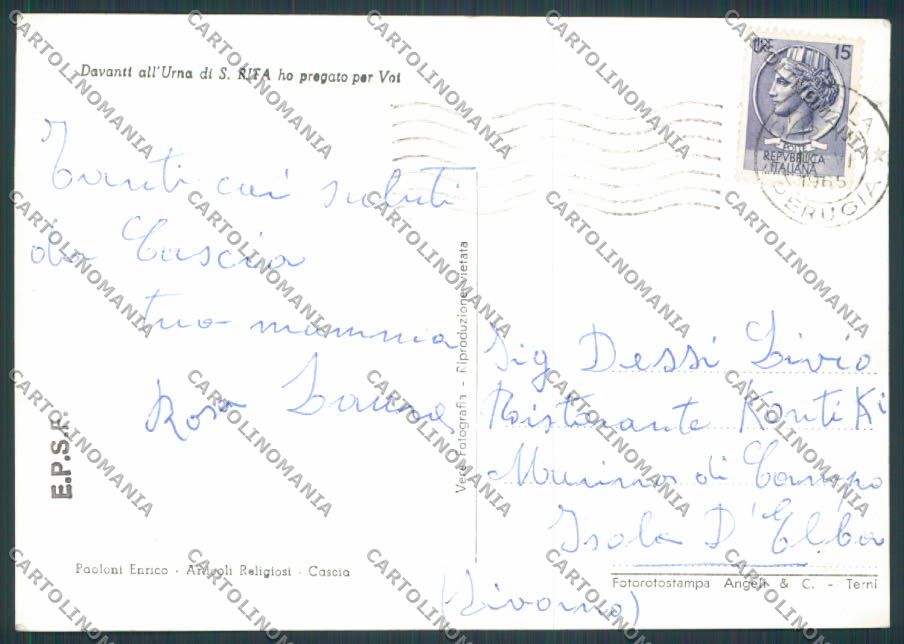 Davanti all'Urna di S. RITA ho pregato per Voi
Tanti cari saluti
da Cascia
tua mamma
Rosa Laura
E.P.S.F.
Paoloni Enrico - Articoli Religiosi - Cascia
Vera Fotografia - Riproduzione vietata
LIRE 15
POSTE
REPVBBLICA
ITALIANA
1965
PERUGIA
Sig Dessi Livio
Ristorante Konti Ki
Marina di Campo
Isola D'Elba
(Livorno)
Fotorotostampa Angeli & C. - Terni
CARTOLINOMANIA